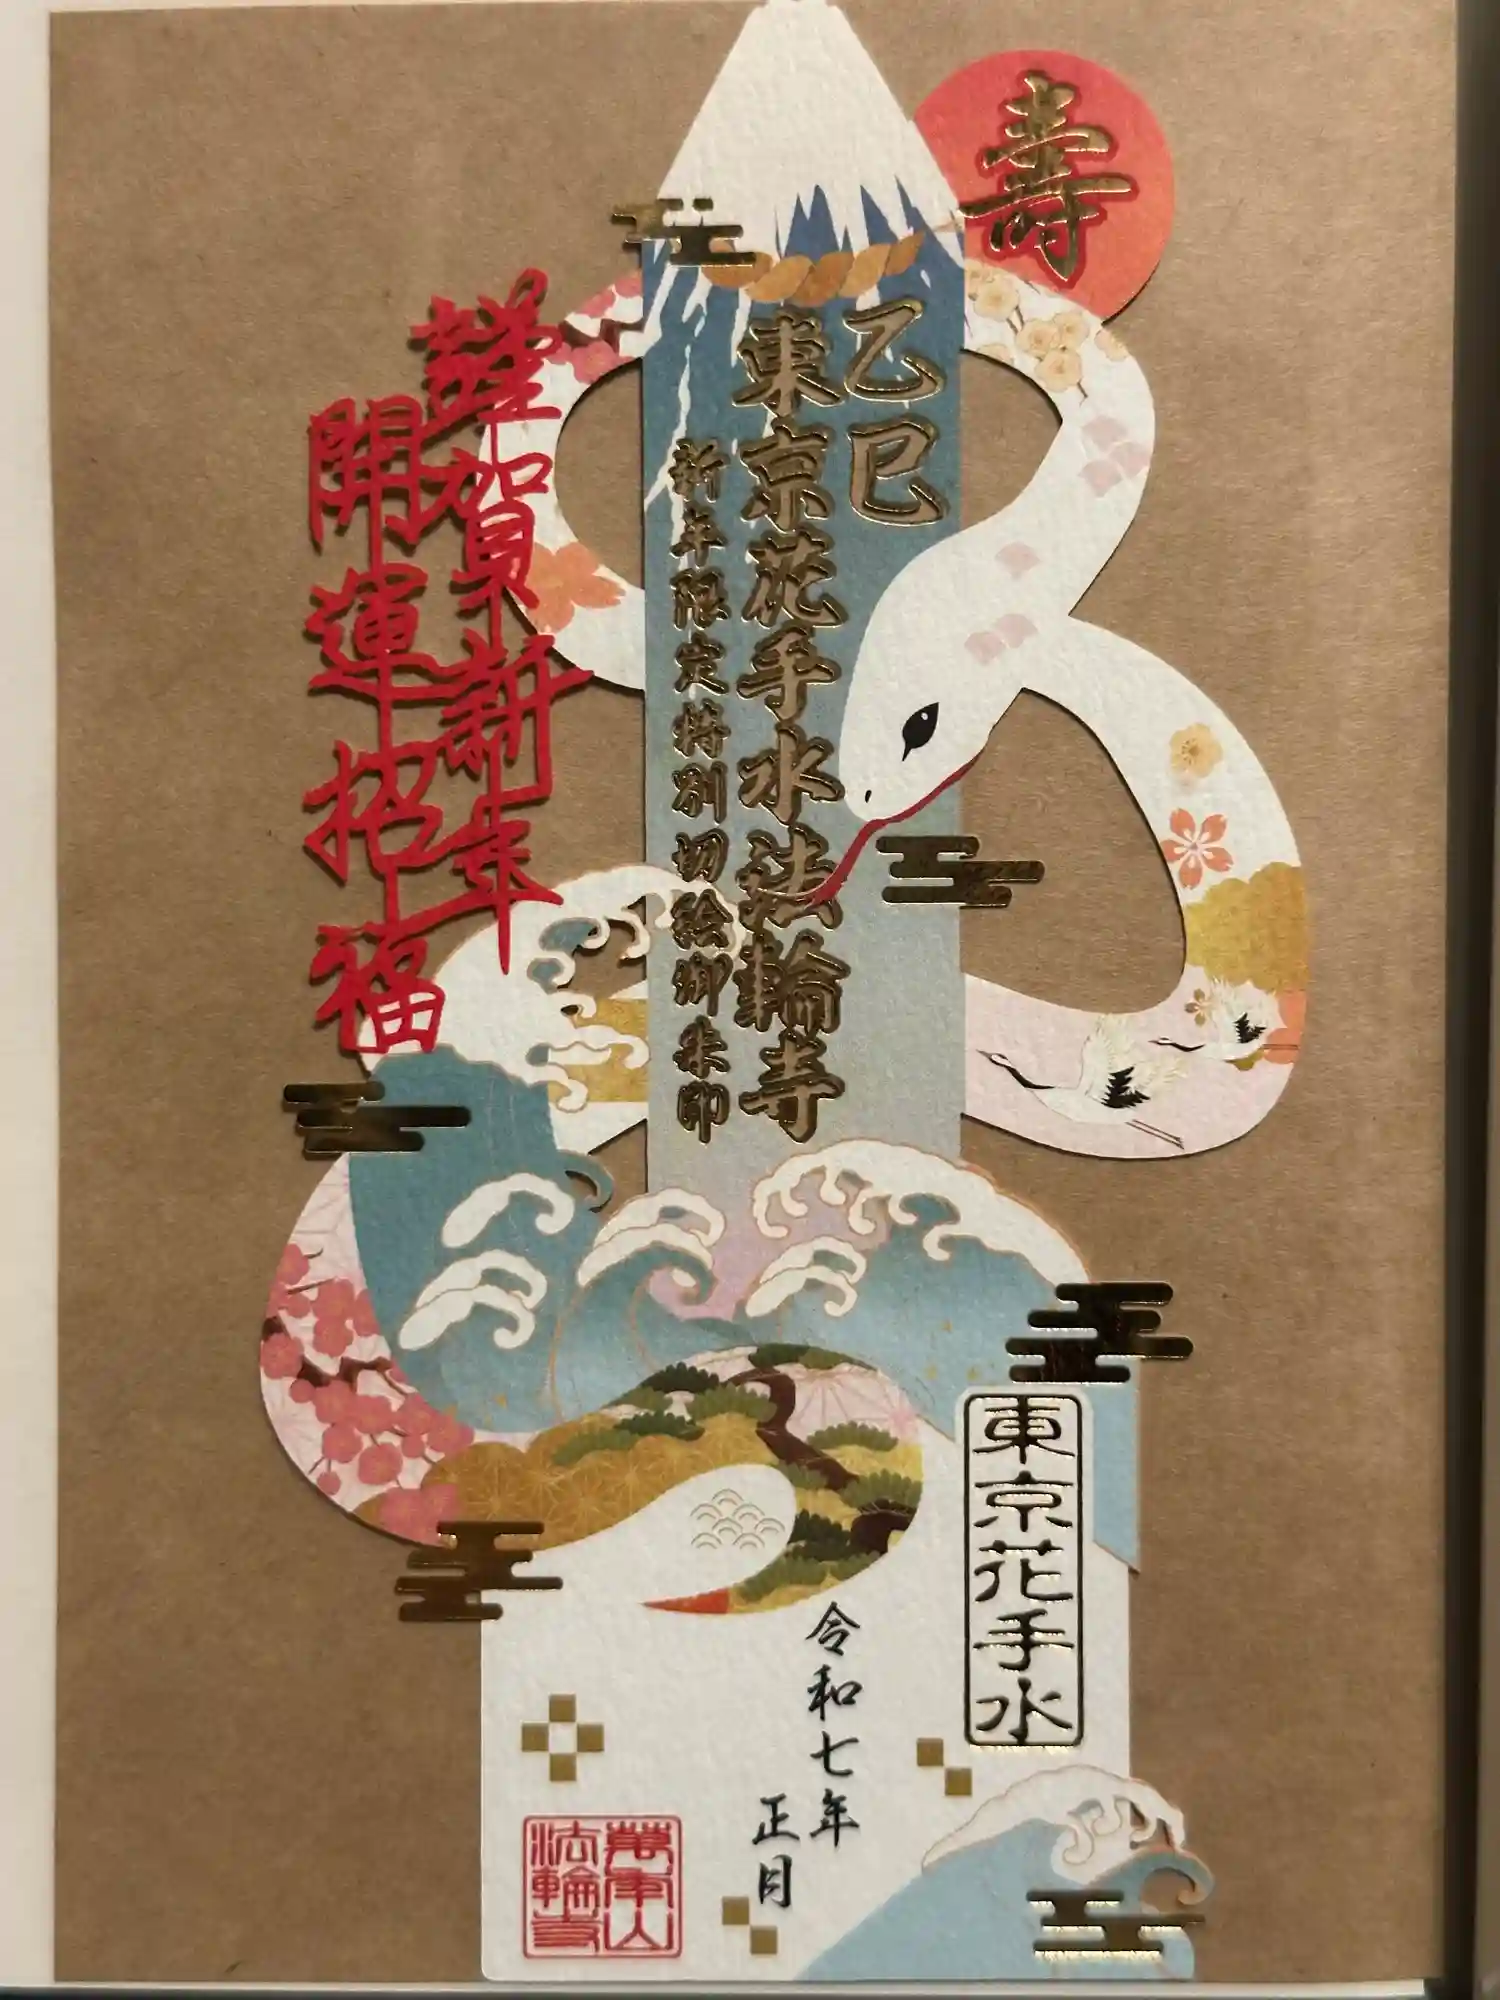 壽
乙巳
東京花手水法輪寺
新年限定特別切絵御朱印
謹賀新年
開運招福
東京花手水
令和七年
正月
萬年山
法輪寺